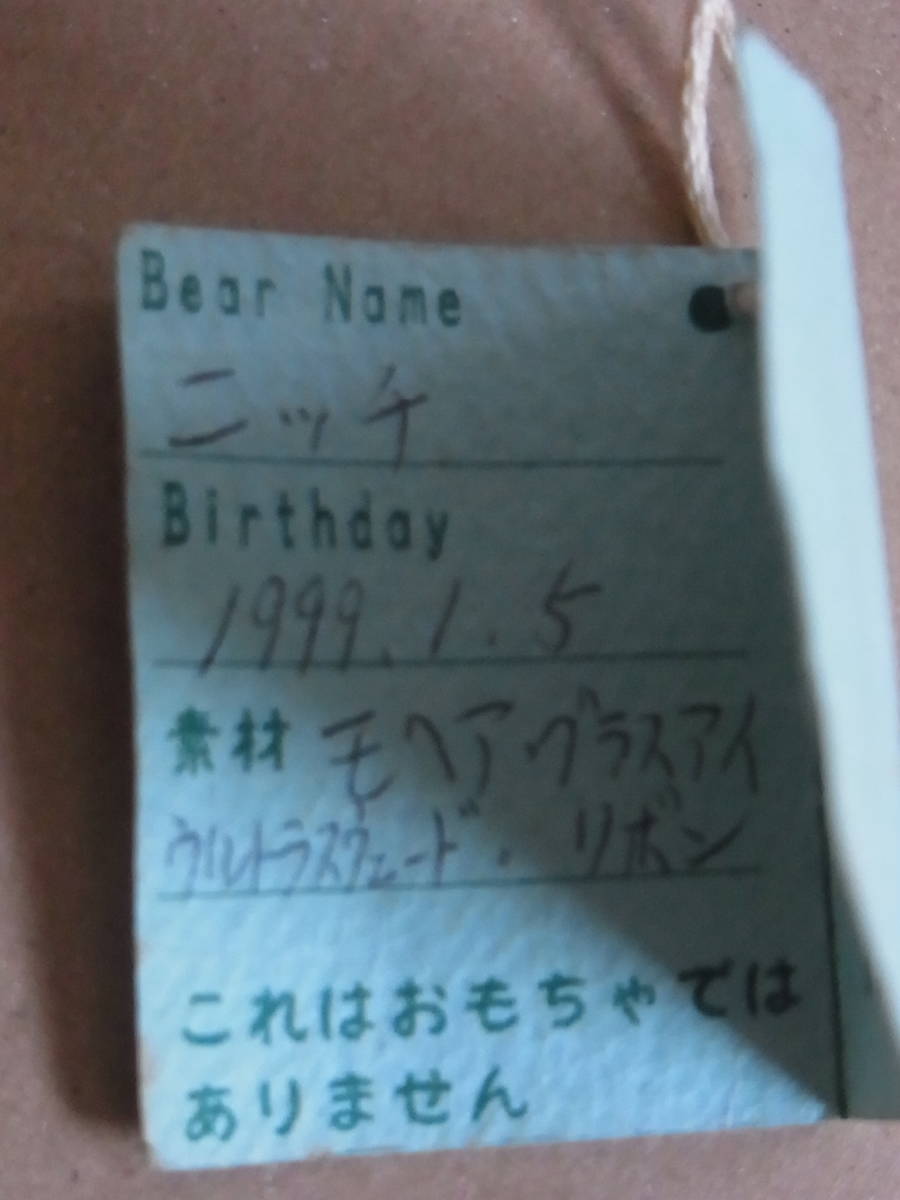 Bear Name
ニッチ
Birthday
1999.1.5
素材 モヘア グラスアイ
ウルトラスウェード・リボン
これはおもちゃでは
ありません